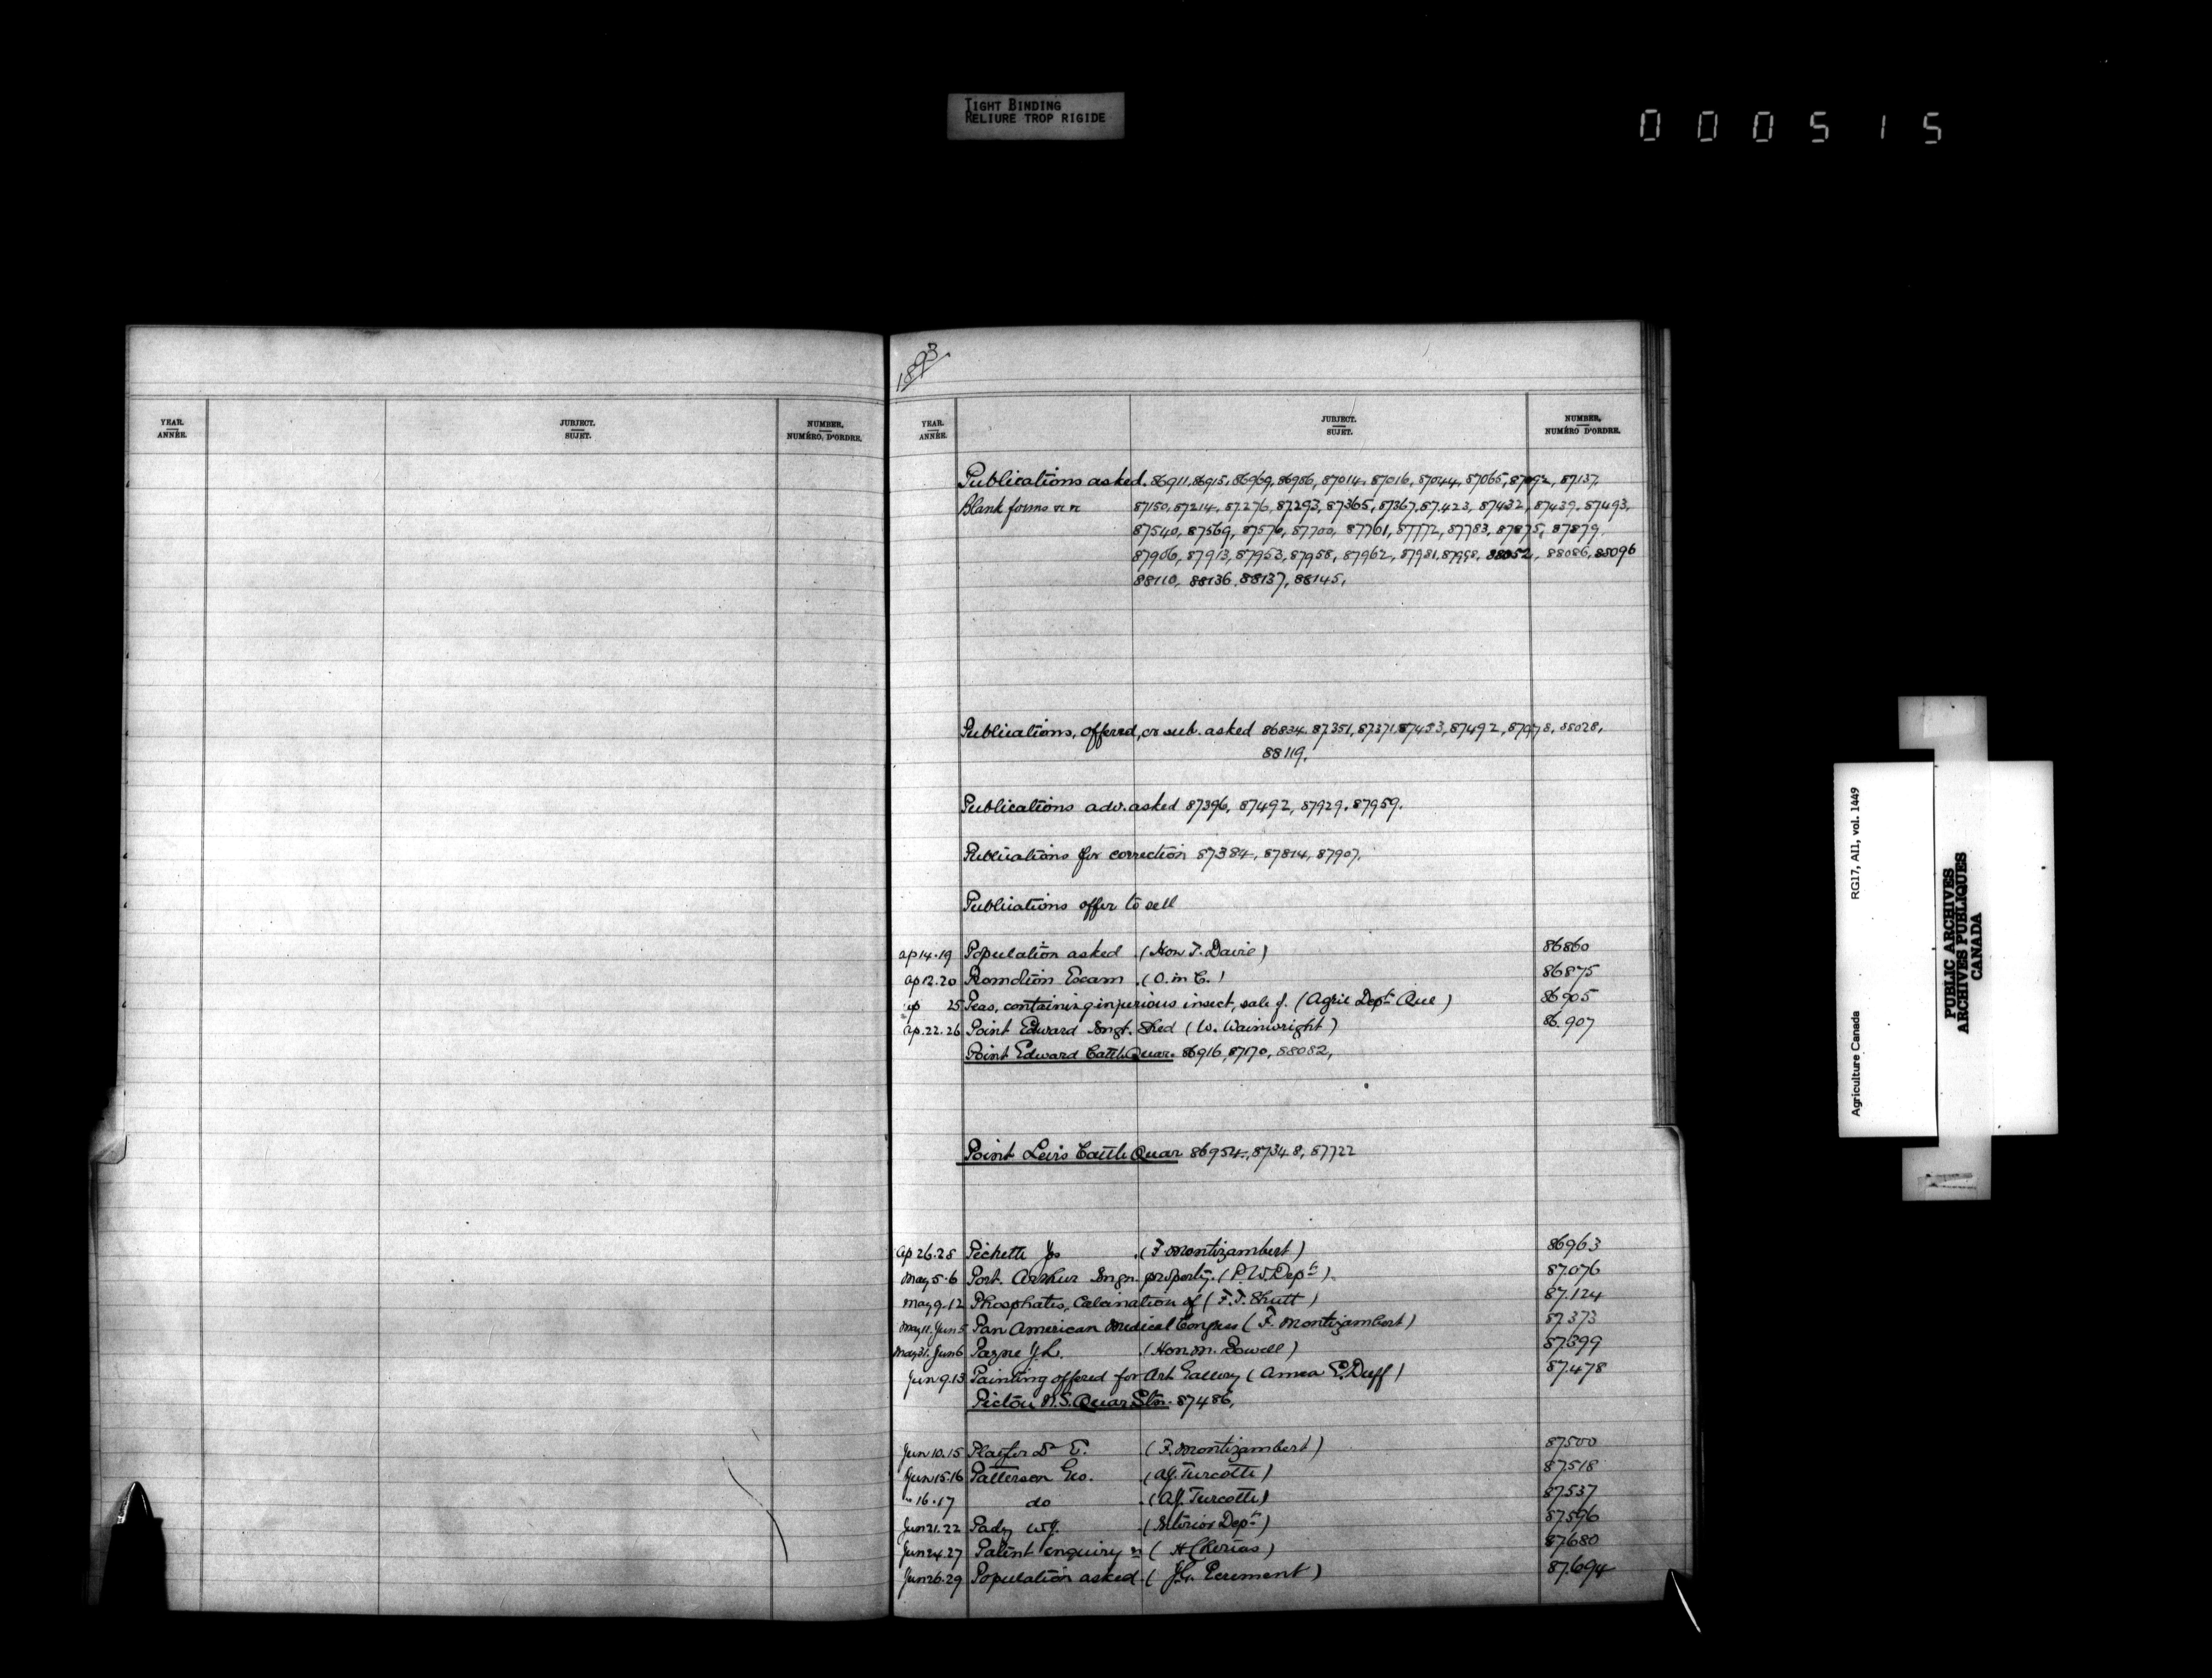 TIGHT BINDING
RELIURE TROP RIGIDE
000515
YEAR.
ANNÉE.
JUBJECT.
SUJET.
NUMBER.
NUMÉRO, D'ORDRE.
1893
YEAR.
ANNÉE.
JUBJECT.
SUJET.
NUMBER.
NUMÉRO D'ORDRE.
Publications asked. 86911, 86915, 86969, 86986, 87014, 87016, 87044, 87065, 87092, 87137,
Blank forms 87150, 87214, 87276, 87293, 87365, 87367, 87423, 87432, 87439, 87493,
87540, 87569, 87576, 87700, 87761, 87772, 87783, 87875, 87879,
87906, 87913, 87953, 87958, 87962, 87981, 87998, 88052, 88086, 88096
88110, 88136, 88137, 88145,
Publications, offered, or sub. asked 86834, 87351, 87371, 87453, 87492, 87978, 88028,
88119.
Publications adv. asked 87396, 87492, 87929, 87959.
Publications for correction 87384, 87814, 87907,
Publications offer to sell
ap 14.19 Population asked (Hon T. Davie) 86860
ap 12.20 Exam. (O. in C.) 86875
ap 25 Peas, containing injurious insect, sale of. (Agric Dept Que) 86905
ap. 22.26 Point Edward Imgt. Shed (W. Wainwright) 86.907
Point Edward Cattle Quar. 86916, 87170, 88082,
Point Levis Cattle Quar 86954, 87348, 87722
ap 26.28 Pichette Jos (F. Montizambert) 86963
May 5.6 Port. Arthur Imgn. property. (P.W. Dept) 87.076
May 9.12 Phosphates, Calcination of (F.T. Shutt) 87.124
May 11. Jun 5 Pan American Medical Congress (F. Montizambert) 87.373
May 31. Jun 6 Payne J.L. (Hon M. Bowell) 87.399
Jun 9.13 Painting offered for Art Gallery (Annea E. Duff) 87.478
Pictou N.S. Quar. Stn. 87486,
Jun 10.15 Playter Dr E. (F. Montizambert) 87500
Jun 15.16 Patterson Geo. (A.J. Turcotte) 87518
" 16.17 do (A.J. Turcotte) 87537
Jun 21.22 Pady W.J. (Interior Dept) 87596
Jun 24.27 Patent enquiry re 87680
Jun 26.29 Population asked (J.C. Perement) 87.694
Agriculture Canada RG17, AI1, vol. 1449
PUBLIC ARCHIVES
ARCHIVES PUBLIQUES
CANADA